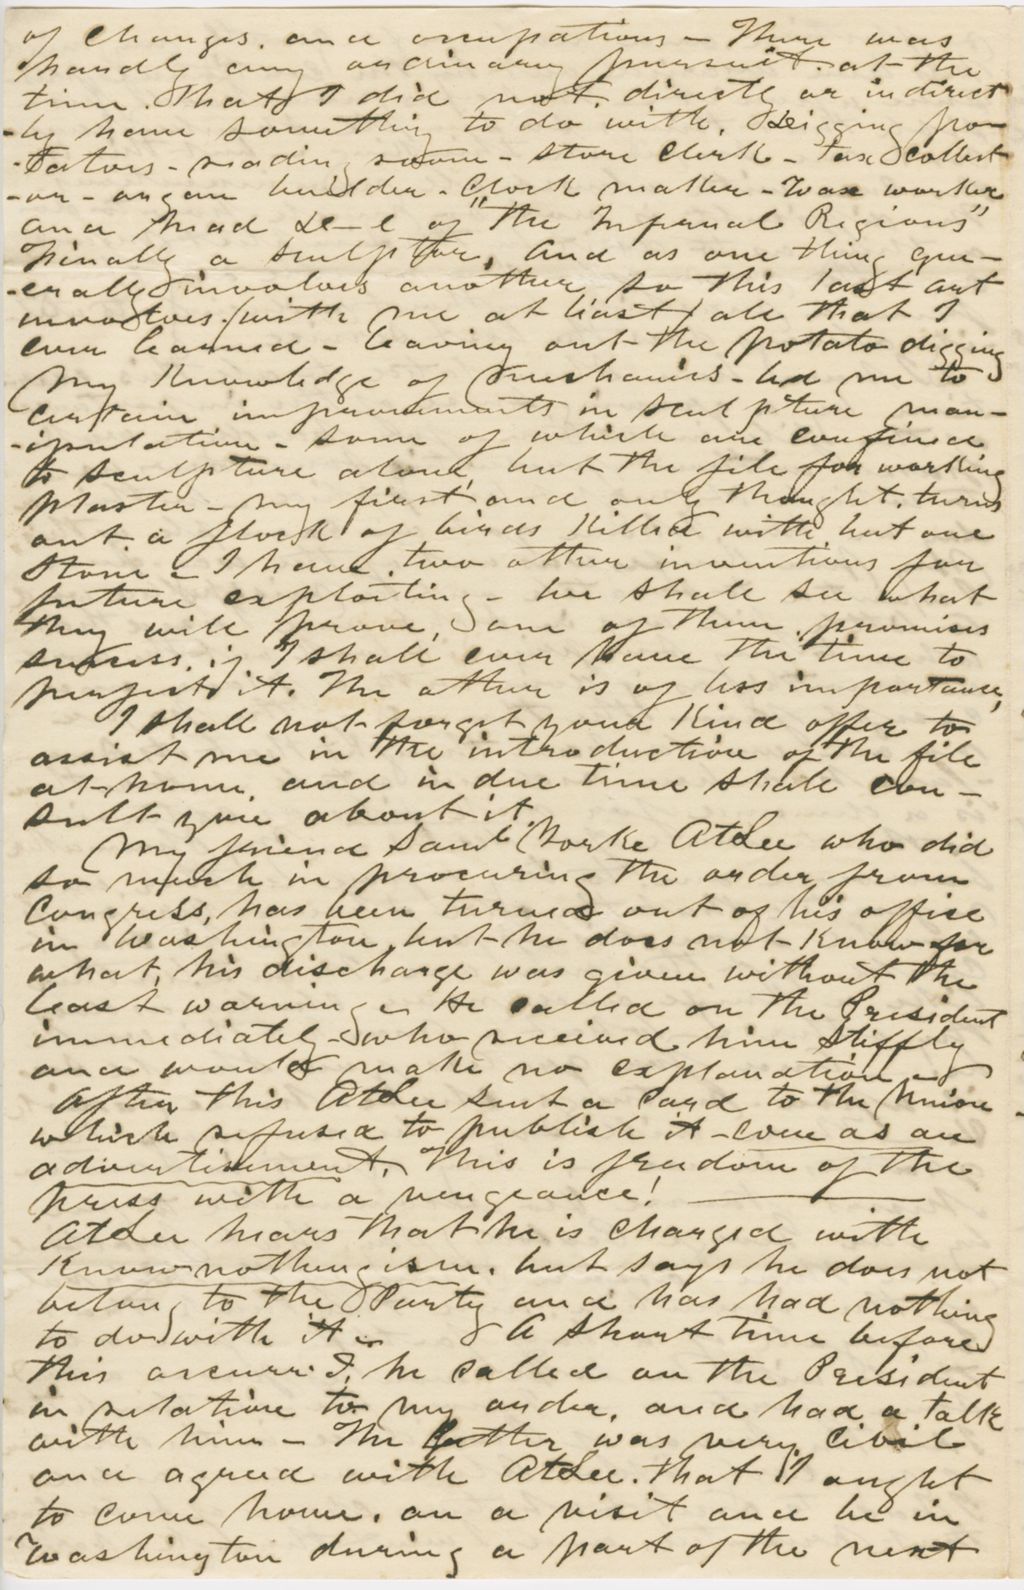 of changes. and occupations — There was
hardly any ordinary pursuit at the
time. That I did not, directly or indirect
-ly have something to do with, Digging po-
-tatoes - reading room - store clerk - Tax collect
-or - organ builder - Clock maker - Wax worker
and head De—l of "The Infernal Regions"
Finally a sculptor, and as one thing gen-
-erally involves another, so this last art
involves (with me at least) all that I
ever learned - leaving out the potato digging
My Knowledge of Mechanics - led me to
certain improvements in sculpture man-
-ipulation - some of which are confined
to sculpture alone, but the file for working
plaster - my first and only thought, turns
out a flock of birds killed with but one
stone - I have two other inventions for
future exploiting - we shall see what
they will prove, one of them promises
success, if I shall ever have the time to
perfect it. The other is of less importance,
I shall not forget your Kind offer to
assist me in the introduction of the file
at home, and in due time shall con-
sult you about it.
My friend Saml Yorke AtLee who did
so much in procuring the order from
Congress, has been turned out of his office
in Washington, but he does not Know for
what, his discharge was given without the
least warning. He called on the President
immediately - who received him stiffly
and would make no explanation -
After this AtLee sent a Card to the Union
which refused to publish it - even as an
advertisement. This is freedom of the
press with a vengeance!
AtLee hears that he is charged with
Know nothingism. but says he does not
belong to the Party and has had nothing
to do with it. A short time before
this occurred, he called on the President
in relation to my order, and had a talk
with him - The latter was very civil
and agreed with AtLee. that I ought
to come home. on a visit and be in
Washington during a part of the next